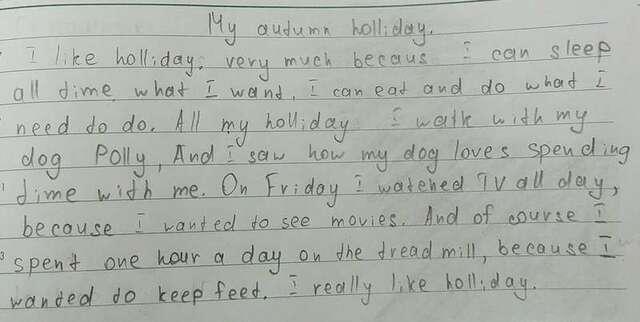 My autumn holliday.
I like holliday. very much becaus I can sleep
all time what I want. I can eat and do what I
need to do. All my holliday I walk with my
dog Polly, And I saw how my dog loves spending
time with me. On Friday I watched TV all day,
because I wanted to see movies. And of course I
spent one hour a day on the tread mill, because I
wanted to keep feet. I really like holliday.